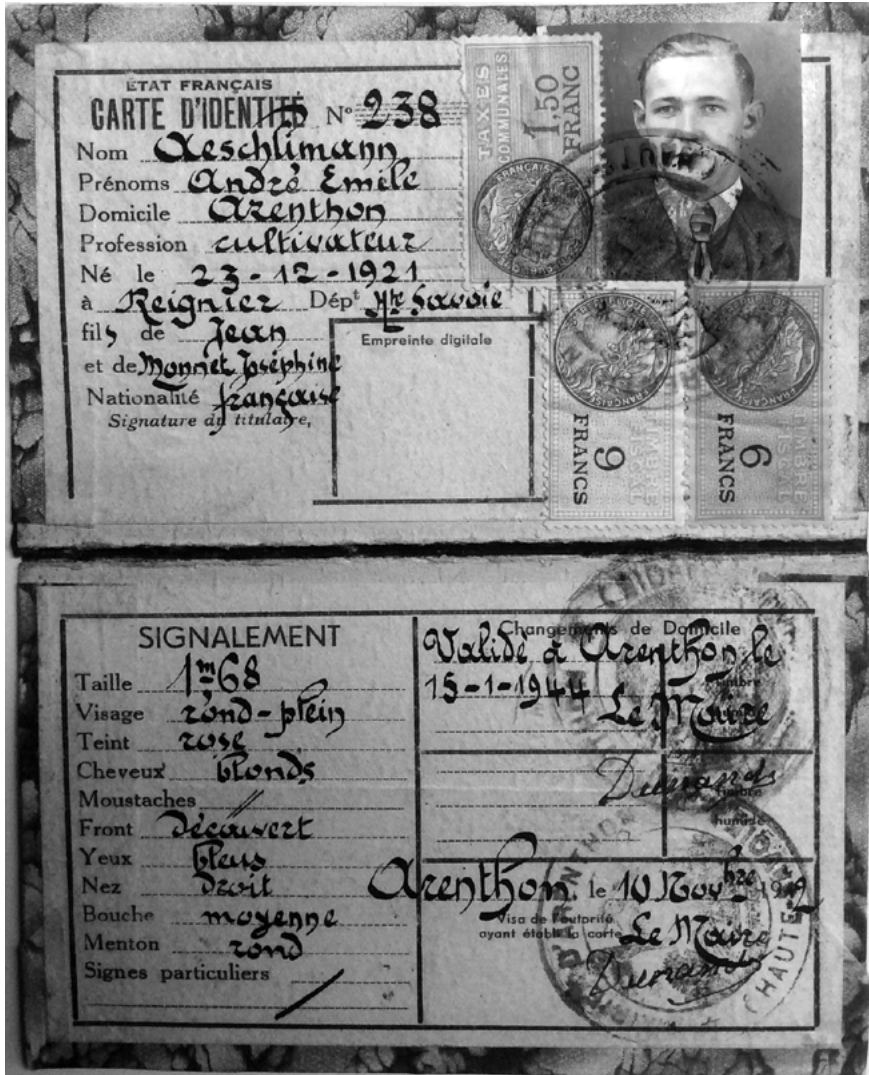 ÉTAT FRANÇAIS
CARTE D'IDENTITÉ Nº 238
Nom Aeschlimann
Prénoms André Emile
Domicile Arenthon
Profession cultivateur
Né le 23-12-1921
à Reignier Dépt Hte Savoie
fils de Jean
et de Monnet Joséphine
Nationalité française
Signature du titulaire,
Empreinte digitale
TAXES COMMUNALES
1,50 FRANC
TIMBRE FISCAL
9 FRANCS
TIMBRE FISCAL
6 FRANCS
SIGNALEMENT
Taille 1m68
Visage rond-plein
Teint rose
Cheveux blonds
Moustaches //
Front découvert
Yeux bleus
Nez droit
Bouche moyenne
Menton rond
Signes particuliers /
Changements de Domicile
Validé à Arenthon le
15-1-1944 timbre
Le Maire
Dunand
timbre
humide
Arenthon, le 10 Novbre 1942
Visa de l'autorité
ayant établi la carte
Le Maire
Dunand
HAUTE